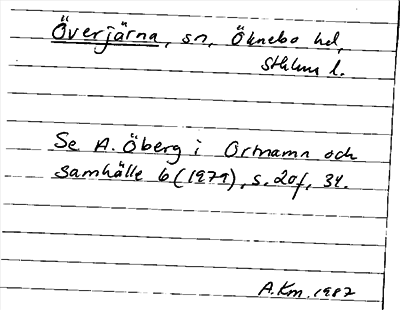 Överjärna, sn, Öknebo hd,
Sthlms l.
Se A. Öberg i Ortnamn och
samhälle 6 (1979), s. 20f, 34.
A.Km. 1987